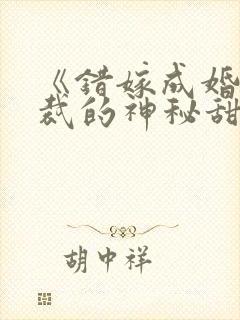 《错嫁成婚
裁的神秘甜
胡中祥